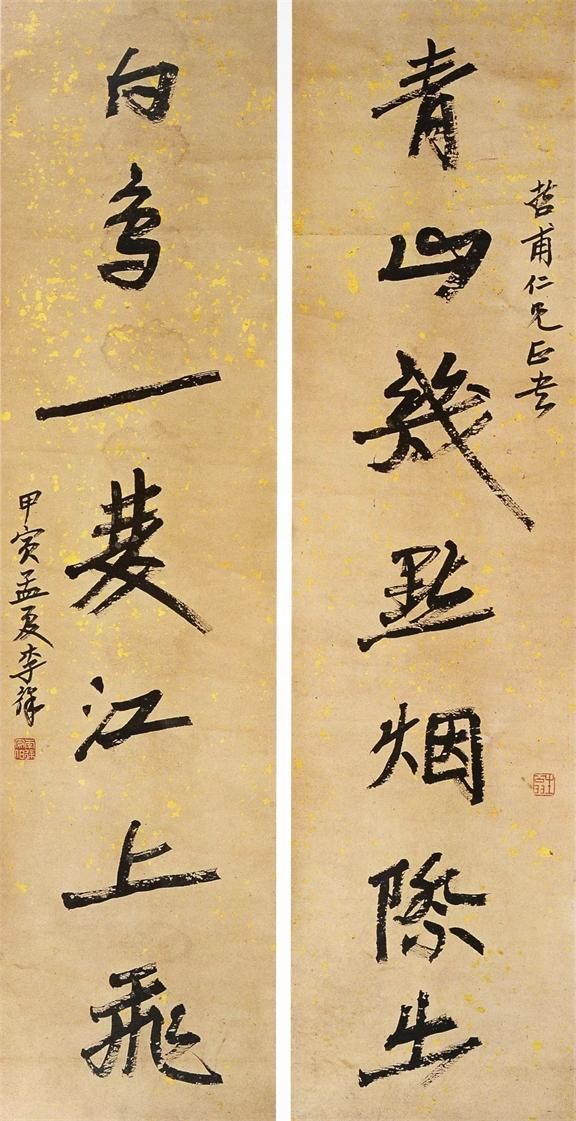 哲甫仁兄正
青山幾點烟際出
白鳥一雙江上飛
甲寅孟夏李